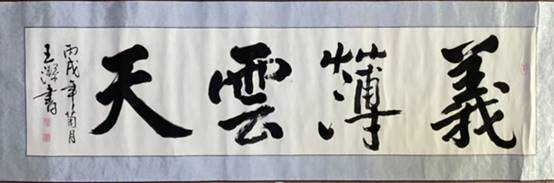 義薄雲天
丙戌年菊月
王學書